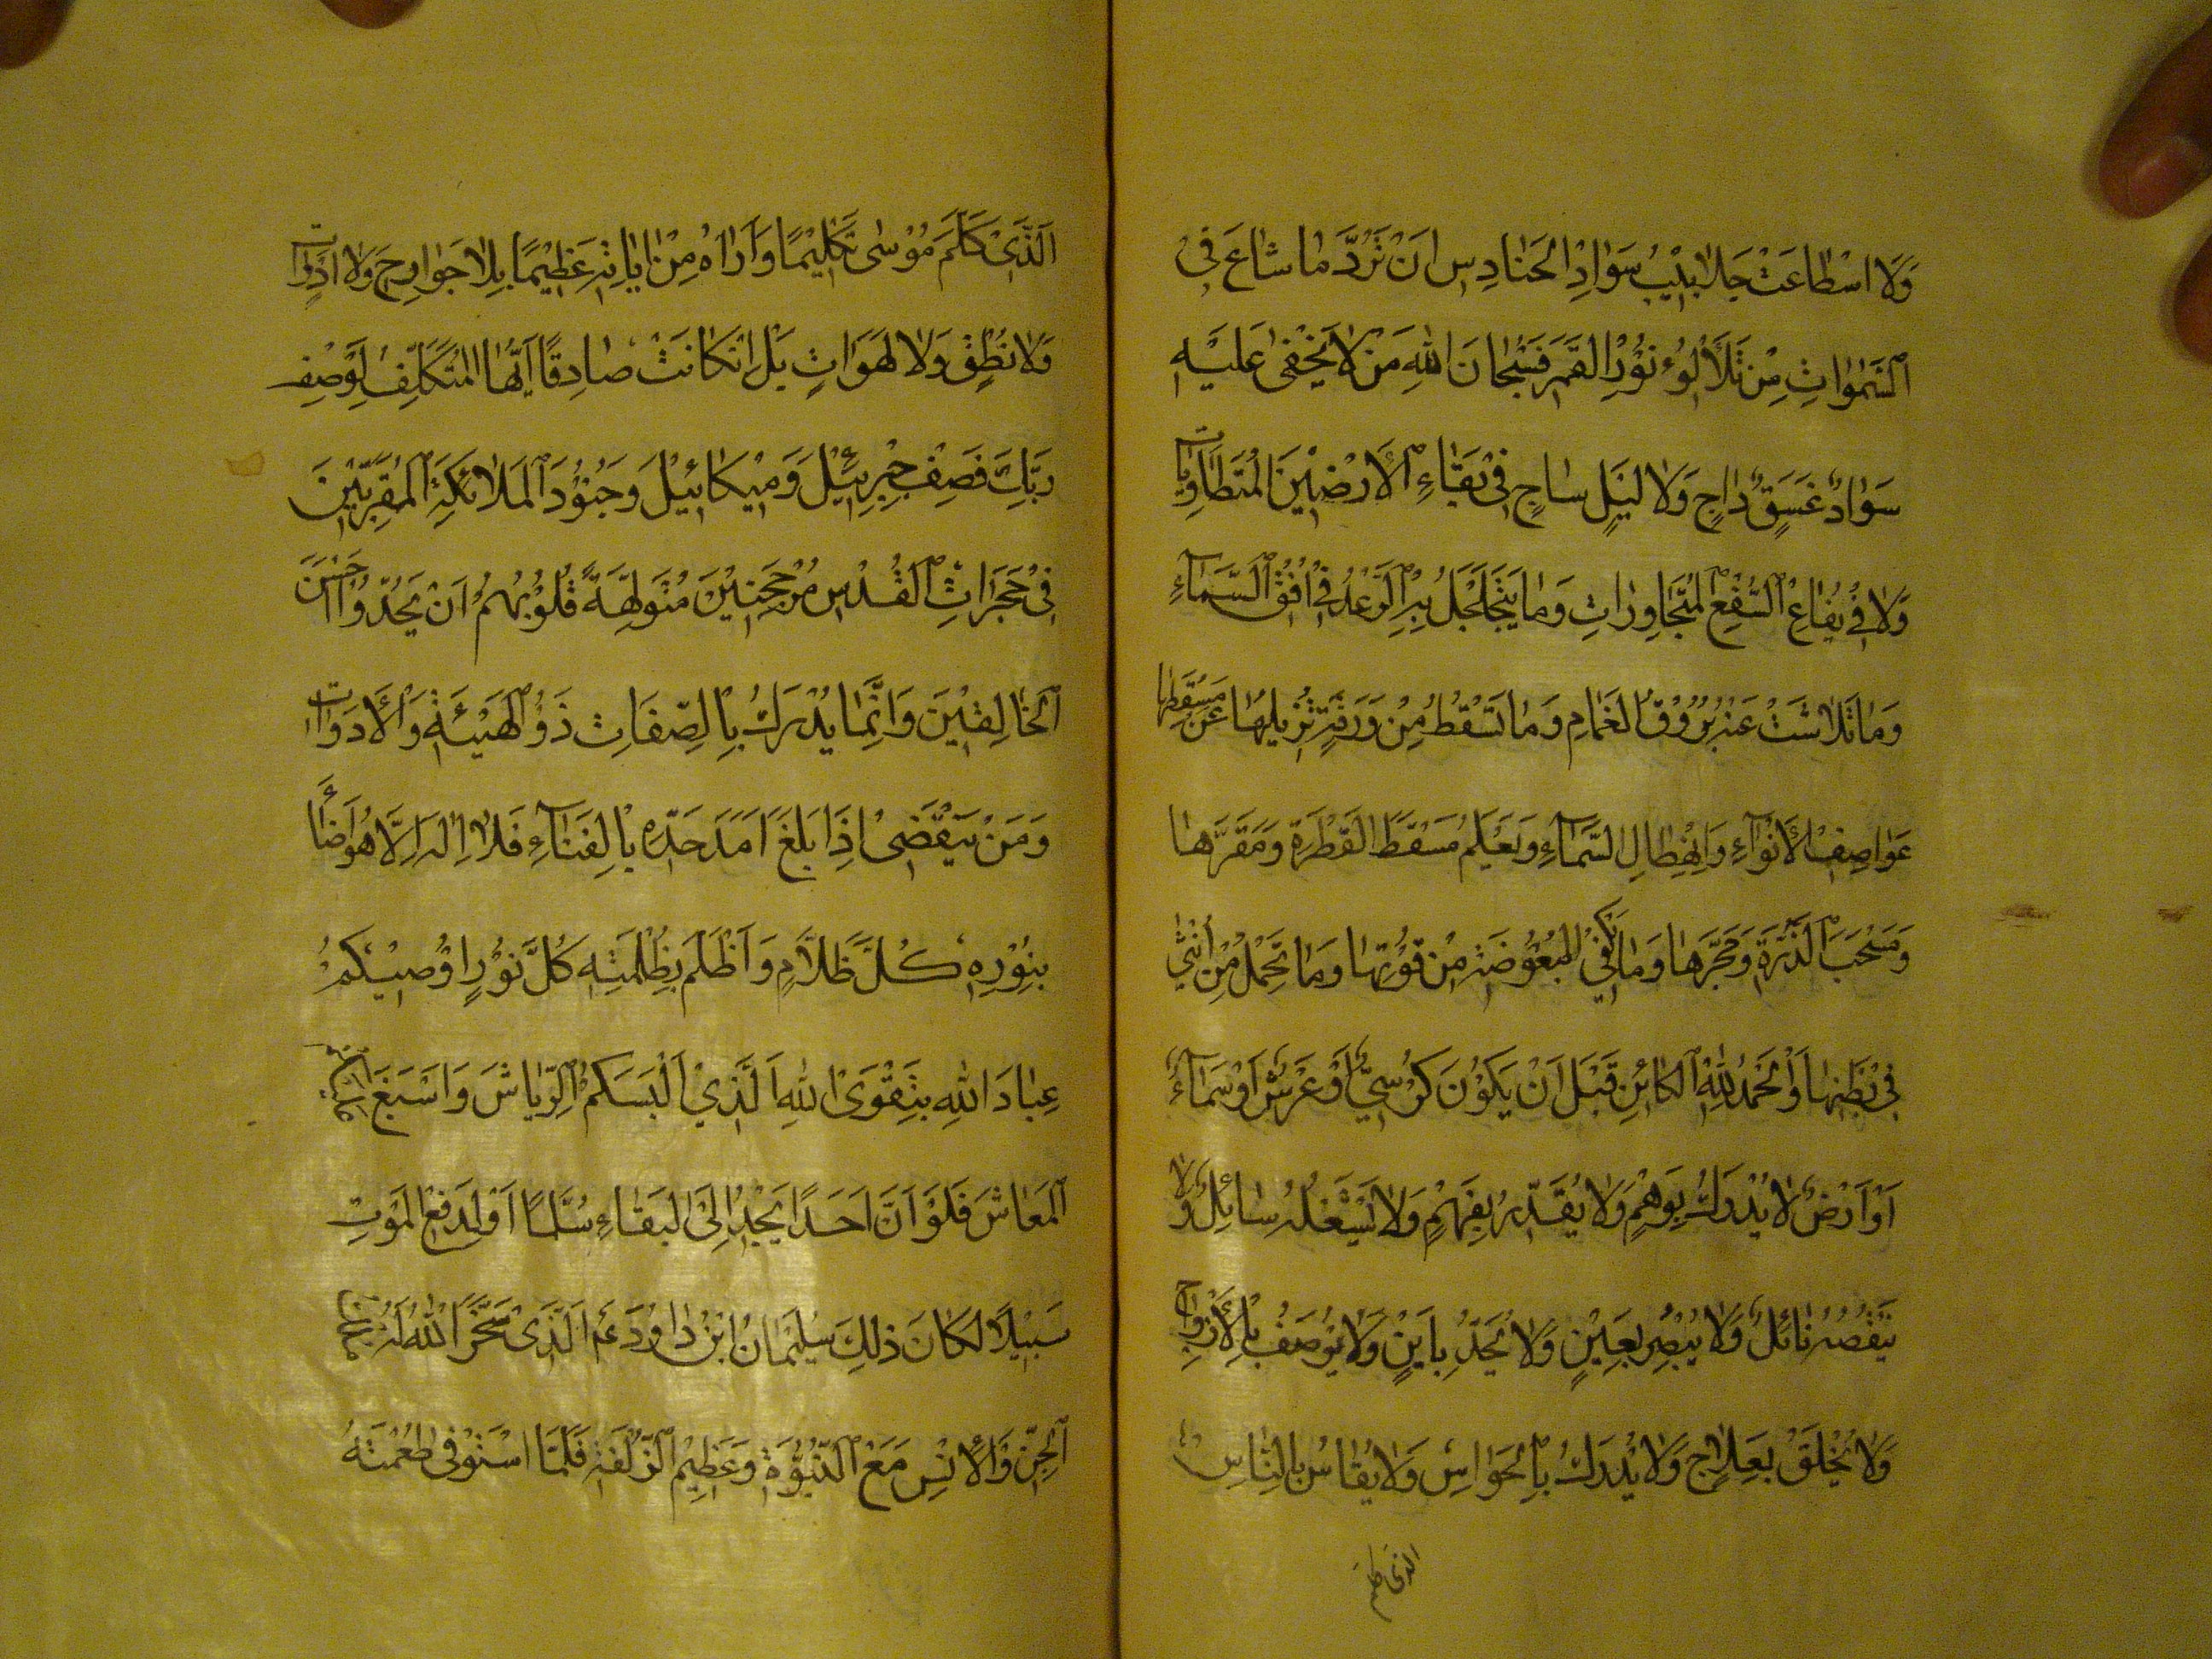 وَلَا اسْطَاعَتْ جَلَابِيْبُ سَوَادِ الْحَنَادِسِ اَنْ تَرُدَّ مَا شَاعَ فِى
السَّمٰوَاتِ مِنْ تَلَأْلُؤِ نُوْرِ الْقَمَرِ فَسُبْحَانَ اللهِ مَنْ لَا يَخْفٰى عَلَيْهِ
سَوَادُ غَسَقٍ دَاجٍ وَلَا لَيْلٍ سَاجٍ فِىْ بَقَاءِ الْاَرَضِيْنَ الْمُتَطَاْطِاٰتِ
وَلَا فِىْ يَفَاعِ السُّفْعِ الْمُتَجَاوِرَاتِ وَمَا يَتَجَلْجَلُ بِهِ الرَّعْدُ فِىْ اُفُقِ السَّمَاۤءِ
وَمَا تَلَاشَتْ عَنْهُ بُرُوْقُ الْغَمَامِ وَمَا تَسْقُطُ مِنْ وَرَقَةٍ تُزِيْلُهَا عَنْ مَسْقَطِهَا
عَوَاصِفُ الْاَنْوَاۤءِ وَانْهِطَالِ السَّمَاۤءِ وَيَعْلَمُ مَسْقَطَ الْقَطْرَةِ وَمَقَرَّهَا
وَمَسْحَبَ الذَّرَّةِ وَمَجَرَّهَا وَمَا يَكْفِىْ الْبَعُوْضَةَ مِنْ قُوْتِهَا وَمَا تَحْمِلُ مِنْ اُنْثٰى
فِىْ بَطْنِهَا وَالْحَمْدُ لِلّٰهِ الْكَائِنِ قَبْلَ اَنْ يَكُوْنَ كُرْسِىٌّ اَوْ عَرْشٌ اَوْ سَمَاۤءٌ
اَوْ اَرْضٌ لَا يُدْرَكُ بِوَهْمٍ وَلَا يُقَدَّرُ بِفَهْمٍ وَلَا يَشْغَلُهُ سَائِلٌ وَلَا
يَنْقُصُهُ نَائِلٌ وَلَا يُبْصِرُ بِعَيْنٍ وَلَا يُحَدُّ بِاَيْنٍ وَلَا يُوْصَفُ بِالْاَزْوَاجِ
وَلَا يُخْلَقُ بِعِلَاجٍ وَلَا يُدْرَكُ بِالْحَوَاسِّ وَلَا يُقَاسُ بِالنَّاسِ
الذى كلم
اَلَّذِىْ كَلَّمَ مُوْسٰى تَكْلِيْمًا وَاَرَاهُ مِنْ اٰيَاتِهِ عَظِيْمًا بِلَا جَوَارِحَ وَلَا اَدَوَاتٍ
وَلَا نُطْقٍ وَلَا لَهَوَاتٍ بَلْ اِنْ كَانَتْ صَادِقًا اَيُّهَا الْمُتَكَلِّفُ لِوَصْفِ
رَبِّكَ فَصِفْ جِبْرِئِيْلَ وَمِيْكَائِيْلَ وَجُنُوْدَ الْمَلَائِكَةِ الْمُقَرَّبِيْنَ
فِىْ حُجُرَاتِ الْقُدْسِ مُرْجَحِنِّيْنَ مُتَوَلِّهَةً قُلُوْبُهُمْ اَنْ يَحُدُّوْا اَحْسَنَ
الْخَالِقِيْنَ وَاِنَّمَا يُدْرَكُ بِالصِّفَاتِ ذَوُ الْهَيْئَةِ وَالْاَدَوَاتِ
وَمَنْ يَنْقَضِىْ اِذَا بَلَغَ اَمَدَ حَدِّهِ بِالْفَنَاۤءِ فَلَا اِلٰهَ اِلَّا هُوَ اَضَاۤءَ
بِنُوْرِهِ كُلَّ ظَلَامٍ وَاَظْلَمَ بِظُلْمَتِهِ كُلَّ نُوْرٍ اُوْصِيْكُمْ
عِبَادَ اللهِ بِتَقْوَى اللهِ الَّذِىْ اَلْبَسَكُمُ الرِّيَاشَ وَاَسْبَغَ عَلَيْكُمُ
الْمَعَاشَ فَلَوْ اَنَّ اَحَدًا يَجِدُ اِلَى الْبَقَاءِ سُلَّمًا اَوْ لِدَفْعِ الْمَوْتِ
سَبِيْلًا لَكَانَ ذٰلِكَ سُلَيْمَانَ ابْنَ دَاوُدَ ع الَّذِىْ سَخَّرَ اللهُ لَهُ
الْجِنَّ وَالْاِنْسَ مَعَ النُّبُوَّةِ وَعَظِيْمِ الزُّلْفَةِ فَلَمَّا اسْتَوْفٰى طُعْمَتَهُ